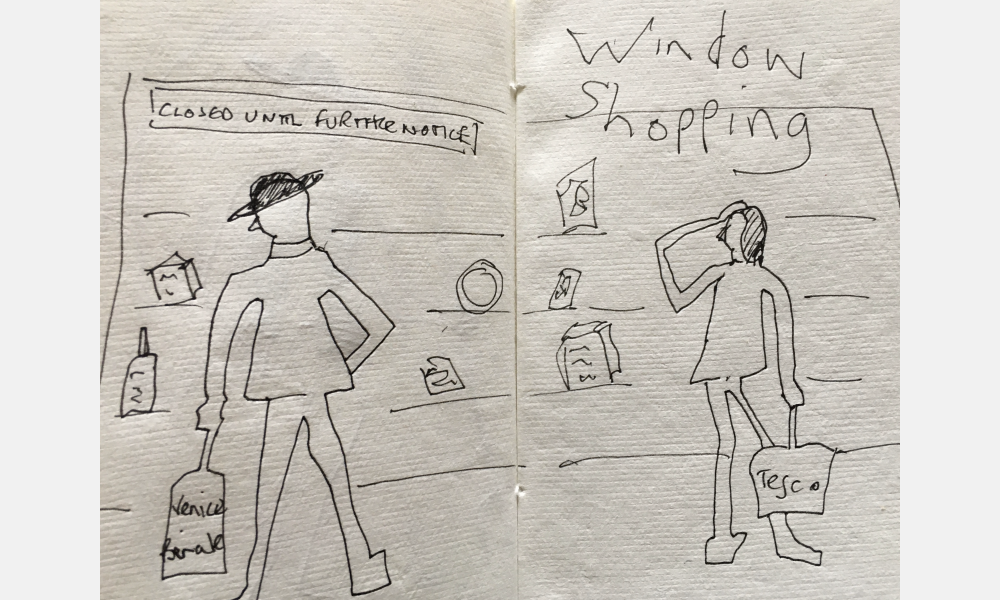 CLOSED UNTIL FURTHER NOTICE
Venice
Window
Shopping
Tesco